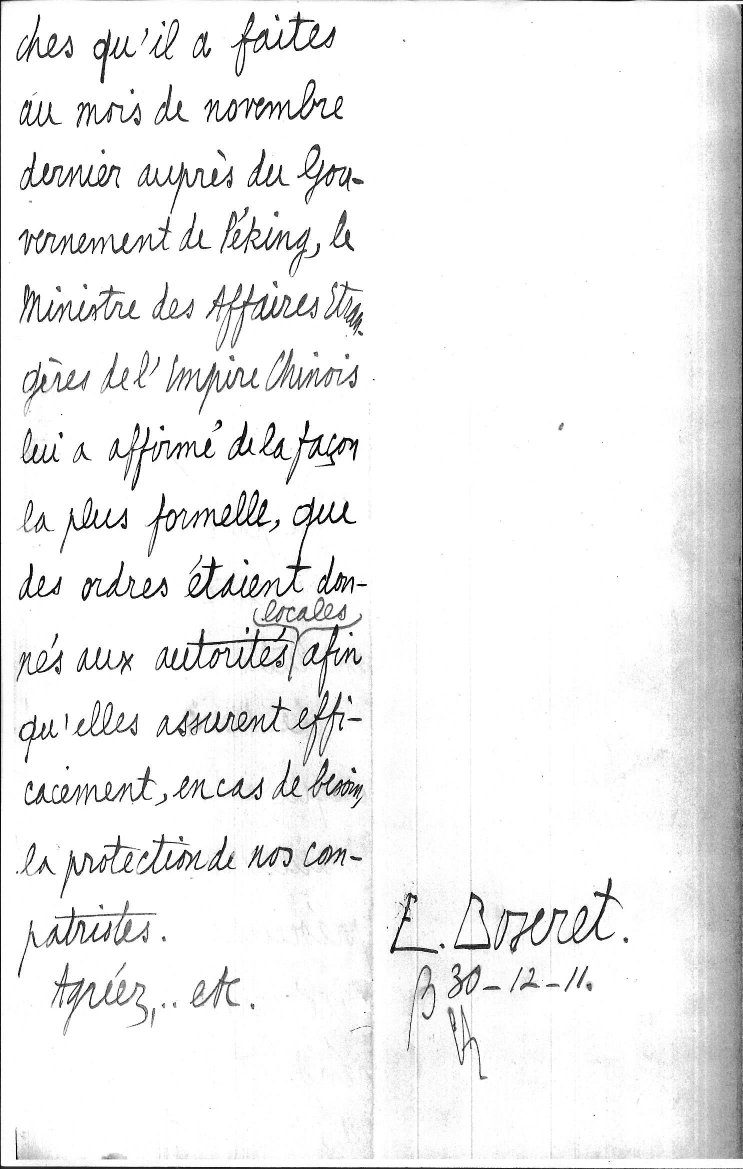 ches qu'il a faites
au mois de novembre
dernier auprès du Gou-
vernement de Péking, le
Ministre des Affaires Etran-
gères de l'Empire Chinois
lui a affirmé de la façon
la plus formelle, que
des ordres étaient don-
locales
nés aux autorités afin
qu'elles assurent effi-
cacement, en cas de besoin,
la protection de nos com-
patriotes.
Agréez,.. etc.
E. Boseret.
30-12-11.